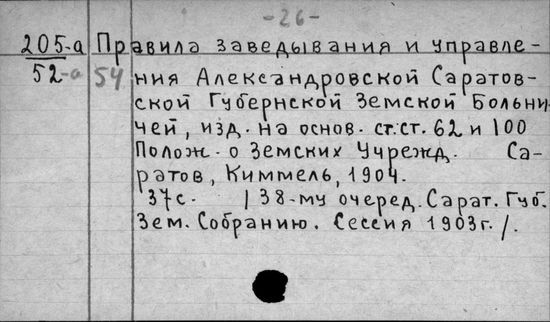 -26-
205-а Правила заведывания и управле-
52-а 54 ния Александровской Саратов-
ской Губернской Земской Больни
цей, изд. на основ. ст.ст. 62 и 100
Полож. о Земских Учрежд. Са-
ратов, Киммель, 1904.
37с. / 38-му очеред. Сарат. Губ.
Зем. Собранию. Сессия 1903г. /.